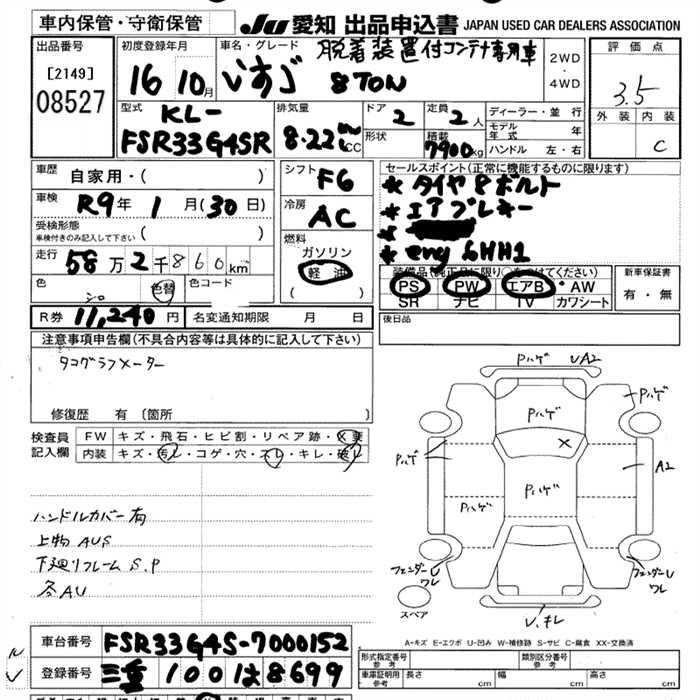 車内保管・守衛保管
JU 愛知 出品申込書 JAPAN USED CAR DEALERS ASSOCIATION
出品番号
[2149]
08527
初度登録年月
16 10月
車名・グレード
いすゞ
脱着装置付コンテナ専用車
8TON
2WD
・
4WD
評価点
3.5
外装 内装
C
型式
KL-
FSR33G4SR
排気量
8.22 CC
ドア
2
形状
定員
2人
積載
7900kg
ディーラー・並行
モデル年式 年
ハンドル 左・右
車歴
自家用・( )
車検
R9年 1月(30日)
受検形態
車検付きのみ記入して下さい ( )
走行
58万2千860km
色
シロ
色替
色コード
シフト
F6
冷房
AC
燃料
ガソリン
軽油
( )
セールスポイント(正常に機能するものに限ります)
* タイヤ8ボルト
* エアブレーキ
*
* eng 6HH1
装備品(純正品に限り○をつけてください)
PS PW エアB ・AW
SR ナビ TV カワシート
新車保証書
有・無
R券 11,240円 名変通知期限 月 日
後日品
注意事項申告欄(不具合内容等は具体的に記入して下さい)
タコグラフメーター
修復歴 有 [箇所 ]
検査員
記入欄
FW キズ・飛石・ヒビ割・リペア跡・X要
内装 キズ・汚レ・コゲ・穴・スレ・キレ・破レ
ハンドルカバー有
上物 AUS
下廻リフレーム S.P
各AU
Pハゲ UA2
Pハゲ
Pハゲ
X
Pハゲ
A2
Pハゲ
Pハゲ
フェンダーU
ワレ
フェンダーU
ワレ
スペア
U.キレ
A-キズ E-エクボ U-凹み W-補修跡 S-サビ C-腐食 XX-交換済
車台番号 FSR33G4S-7000152
登録番号 三重 100 は 8699
形式指定番号
参考
類別区分番号
参考
車庫証明用
参考
長さ cm 幅 cm 高さ cm